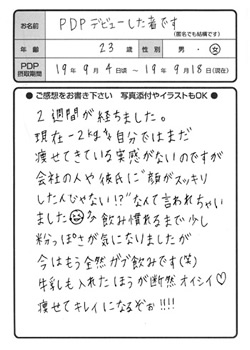 お名前 PDPデビューした者です
(匿名でも結構です)
年齢 23歳 性別 男・女
PDP摂取期間 19年9月4日頃 〜 19年9月18日(現在)
●ご感想をお書き下さい 写真添付やイラストもOK●
2週間が経ちました。
現在-2kg。自分ではまだ
痩せてきている実感がないのですが
会社の人や彼氏に"顔がスッキリ
したんじゃない!?"なんて言われちゃい
ました 飲み慣れるまで少し
粉っぽさが気になりましたが
今はもう全然ガブ飲みです(笑)
牛乳も入れたほうが断然オイシイ♡
痩せてキレイになるぞぉ!!!!